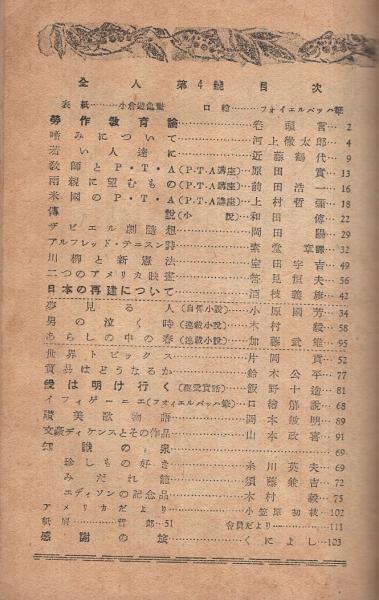 全人 第4號 目次
表紙……小倉遊亀 口繪……フォイエルバッハ筆
勞作敎育論……卷頭言…2
嗜みについて……河上徹太郎…4
若い人達に……近藤鶴代…9
敎師とP・T・A(P.T.A講座)…原田實…13
兩親に望むもの(P.T.A講座)…前田浩一…16
米國のP・T・A(P.T.A講座)…上村哲彌…18
傳說(小說)…和田傳…22
ザビエル劇隨想……岡田陽…29
アルフレッド・テニスン詩……章譯…32
川柳と新憲法……宇吉…49
二つのアメリカ映畫……恒夫…56
日本の再建について……酒枝義旗…42
夢見る人(自傳小說)…小原國芳…34
男の泣く時(連載小說)…木村毅…58
あらしの中の春(連載小說)…加藤武雄…95
世界トピックス……片岡貢…52
貿易はどうなるか……鈴木公平…77
愛は明け行く(戀愛實話)…飯野十造…81
イフィゲーニエ(フォイエルバッハ筆)…口繪解說…68
讃美歌物語……岡本敏明…89
文豪ディケンスとその作品……山本政喜…91
知識の泉……69
珍しもの好き……糸川英夫…69
みだれ籠……須藤兼吉…72
エディソンの記念品……木村毅…75
アメリカだより……小笠原初枝…102
紙屑……哲郎…51 會員だより……111
感謝の旅……くによし…103